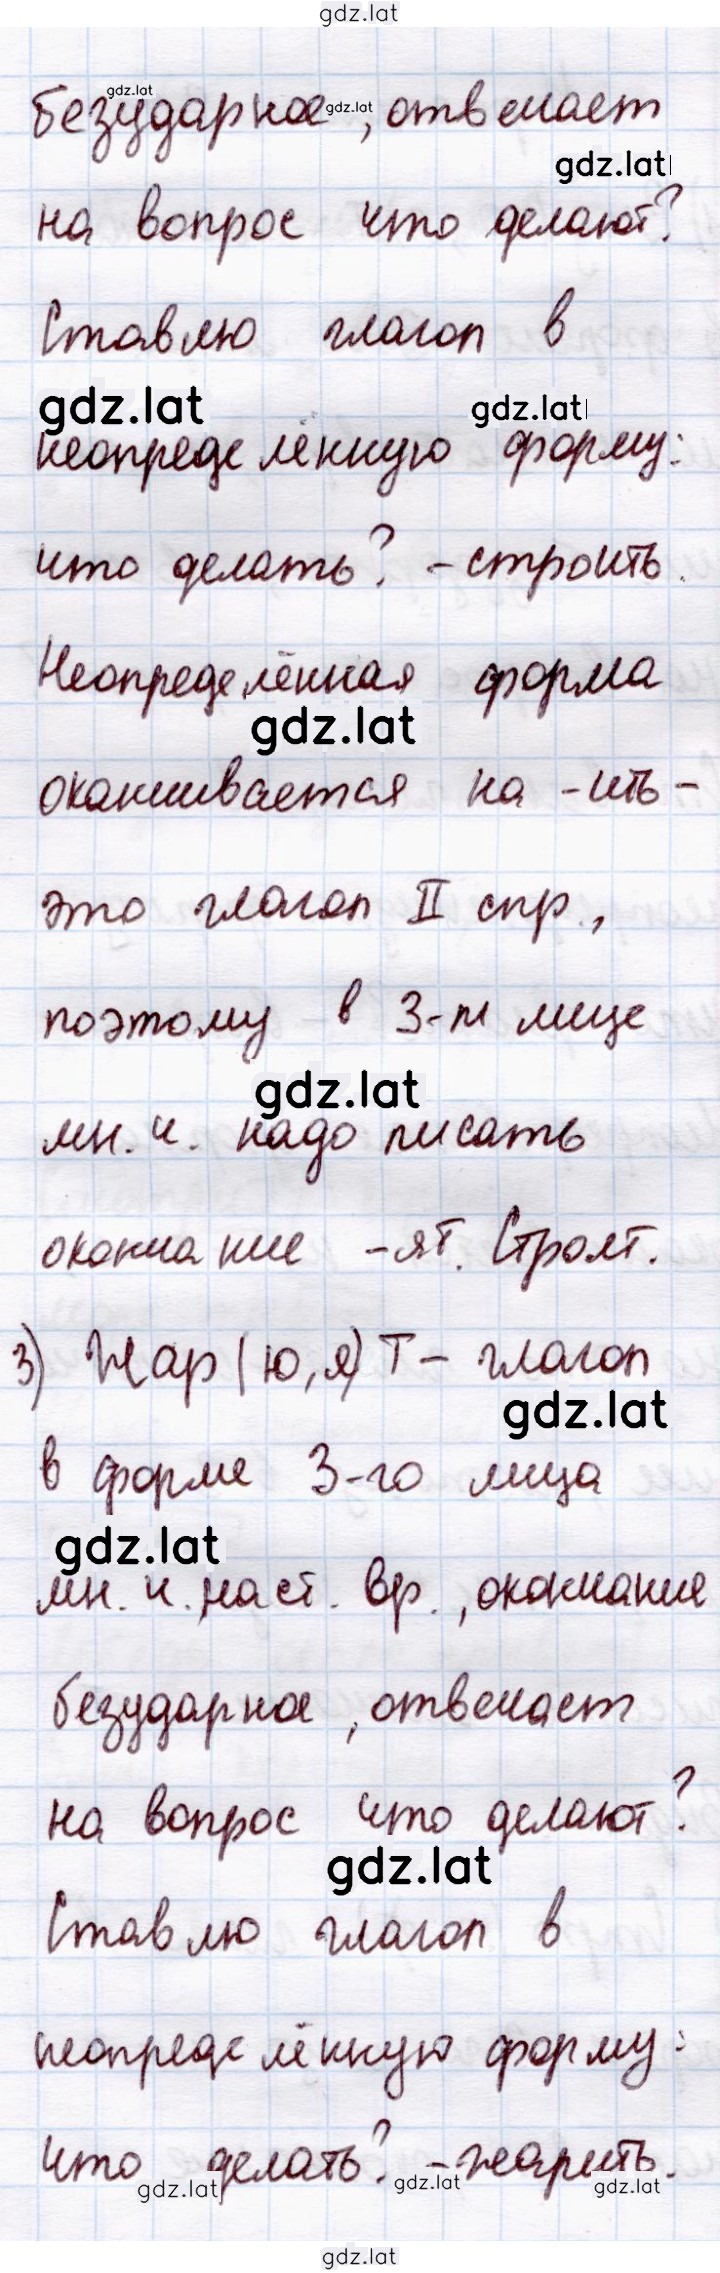 gdz.lat
безударное, отвечает
gdz.lat
gdz.lat
gdz.lat
на вопрос что делают?
Ставлю глагол в
gdz.lat
gdz.lat
неопределённую форму:
что делать? - строить.
Неопределённая форма
gdz.lat
оканчивается на -ить-
это глагол II спр.,
поэтому в 3-м лице
gdz.lat
мн. ч. надо писать
окончание -ят. Строят.
3) Жар(ю,я)т - глагол
gdz.lat
в форме 3-го лица
gdz.lat
мн. ч. наст. вр., окончание
безударное, отвечает
на вопрос что делают?
gdz.lat
Ставлю глагол в
неопределённую форму:
что делать? - жарить.
gdz.lat
gdz.lat
gdz.lat
gdz.lat